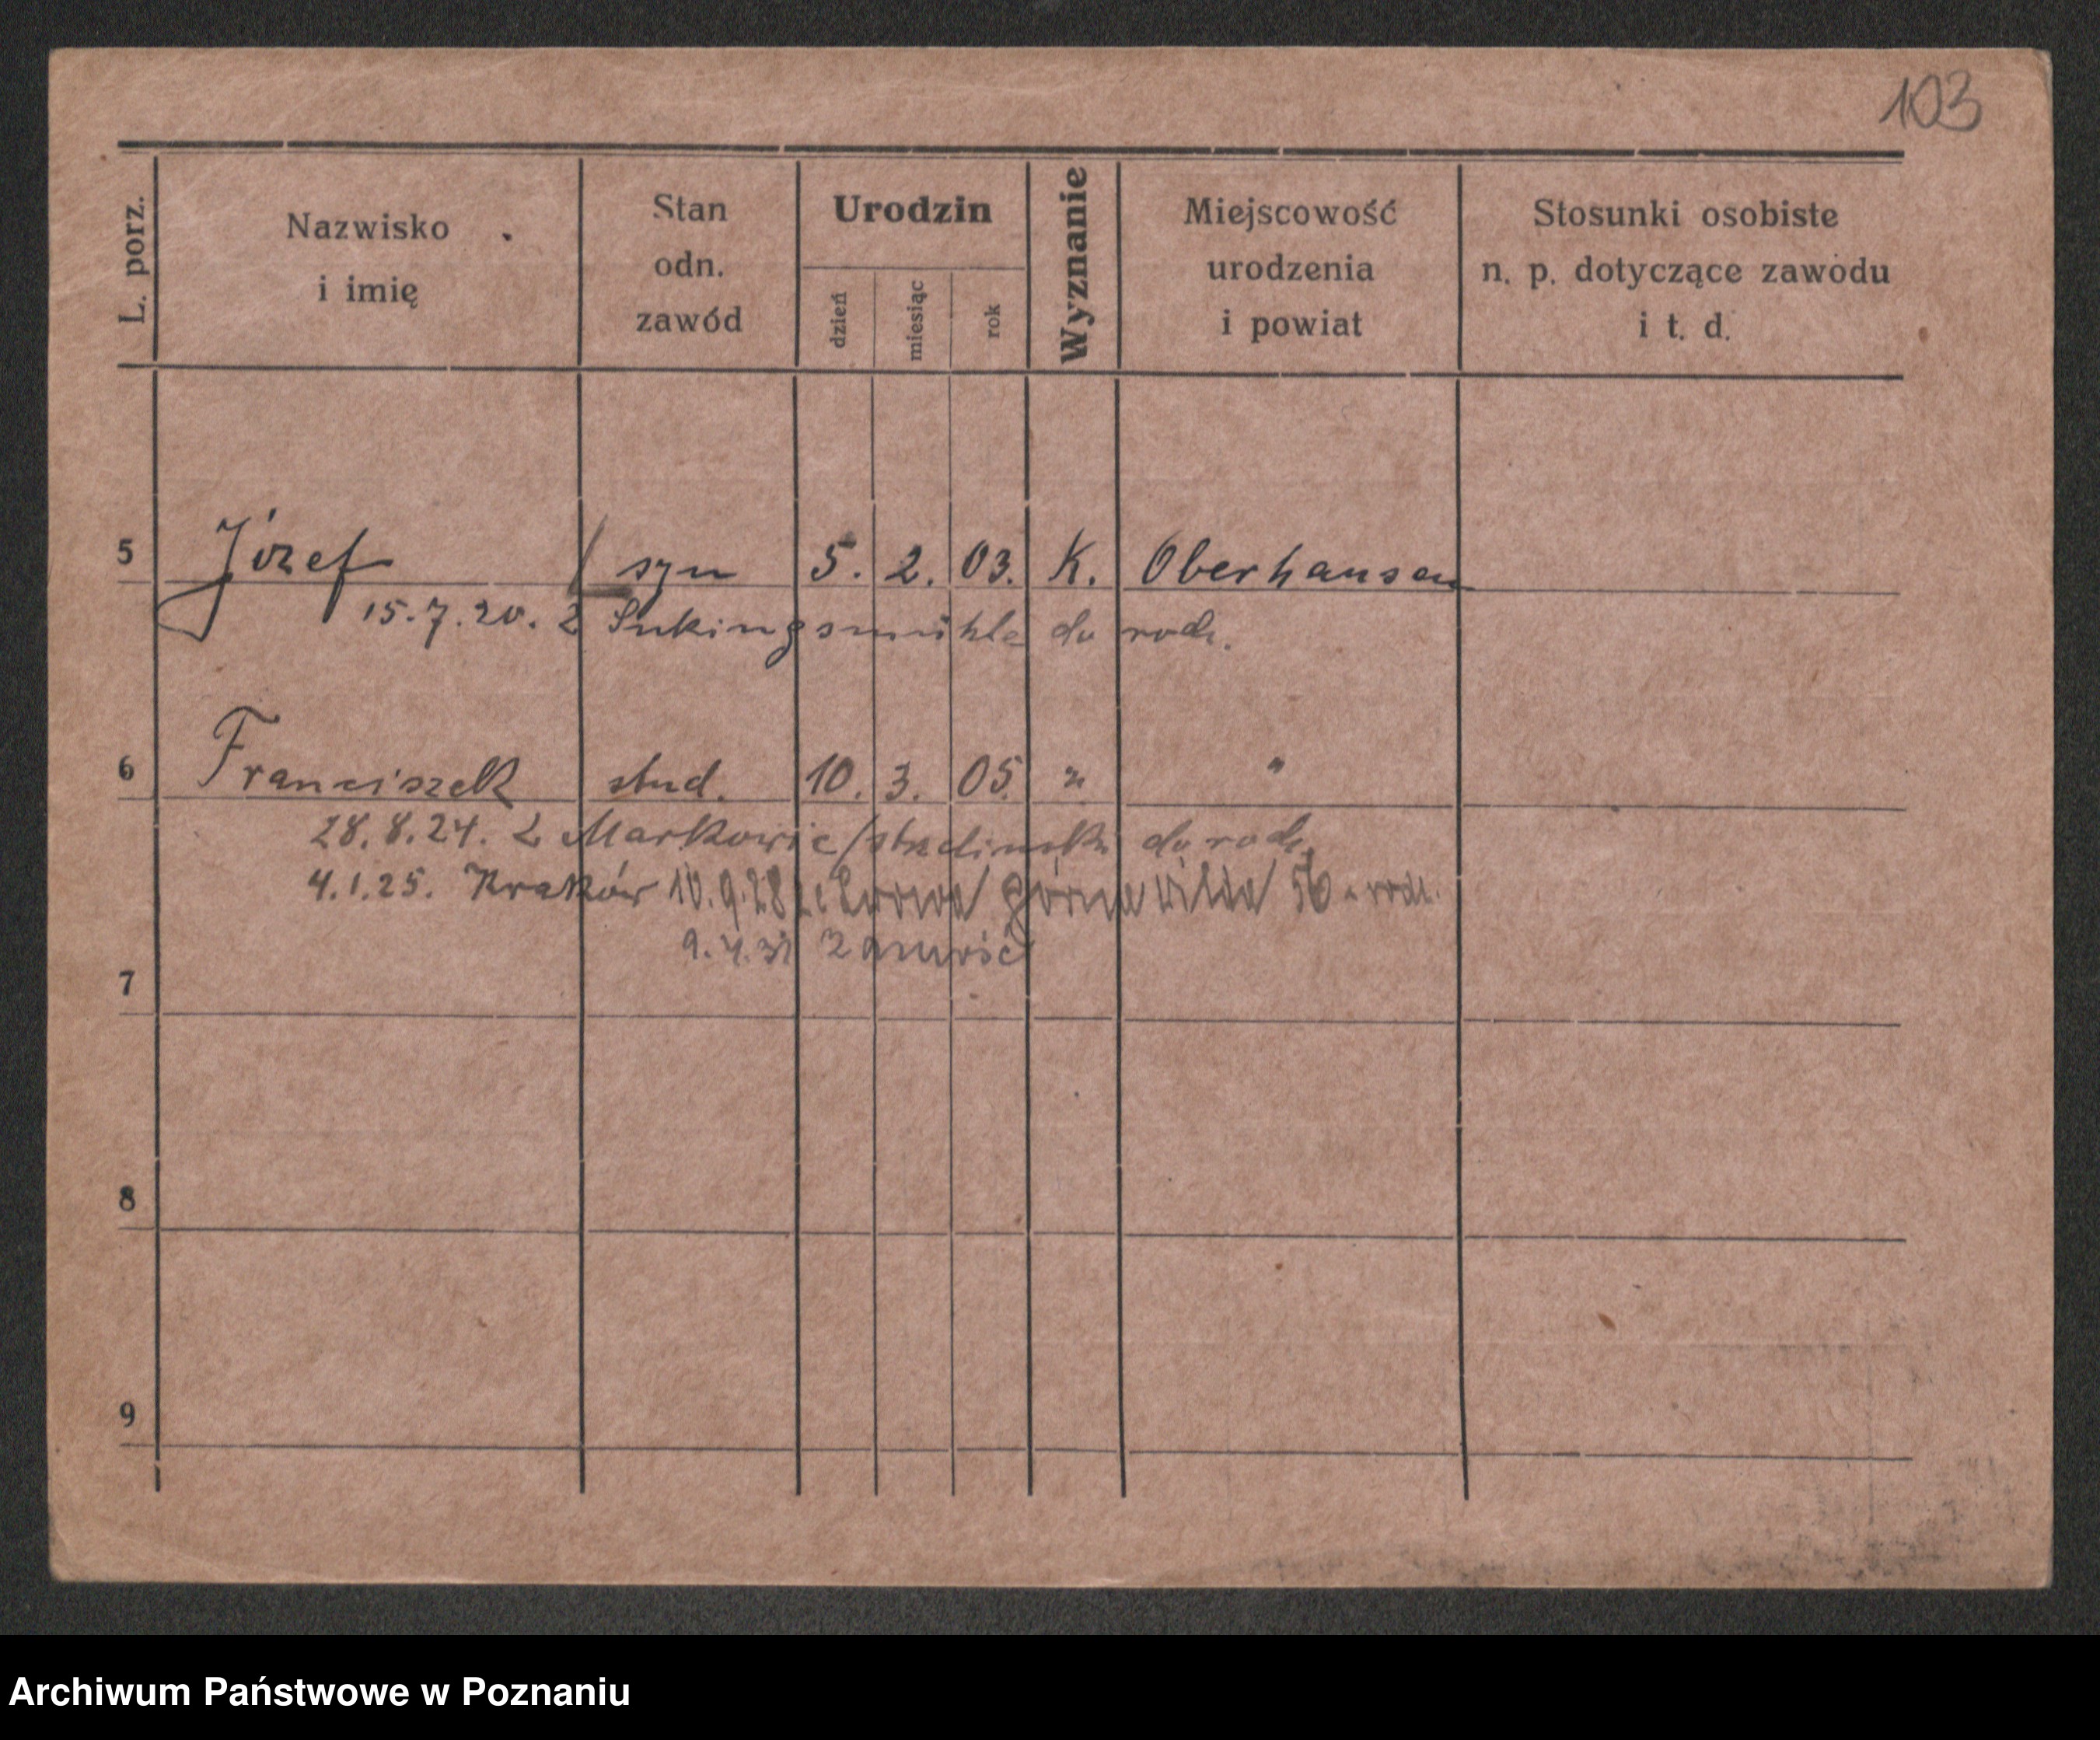 103
L. porz. Nazwisko i imię Stan odn. zawód Urodzin dzień miesiąc rok Wyznanie Miejscowość urodzenia i powiat Stosunki osobiste n. p. dotyczące zawodu i t. d.
5 Józef syn 5. 2. 03. K. Oberhausen
15.7.20. z do rodz.
6 Franciszek stud. 10. 3. 05. " "
28.8.24. z Markowic do rodz.
4.1.25. Kraków 10.9.28 ze Lwowa Górna Wilda 56 rodz.
9.4.31
7
8
9
Archiwum Państwowe w Poznaniu